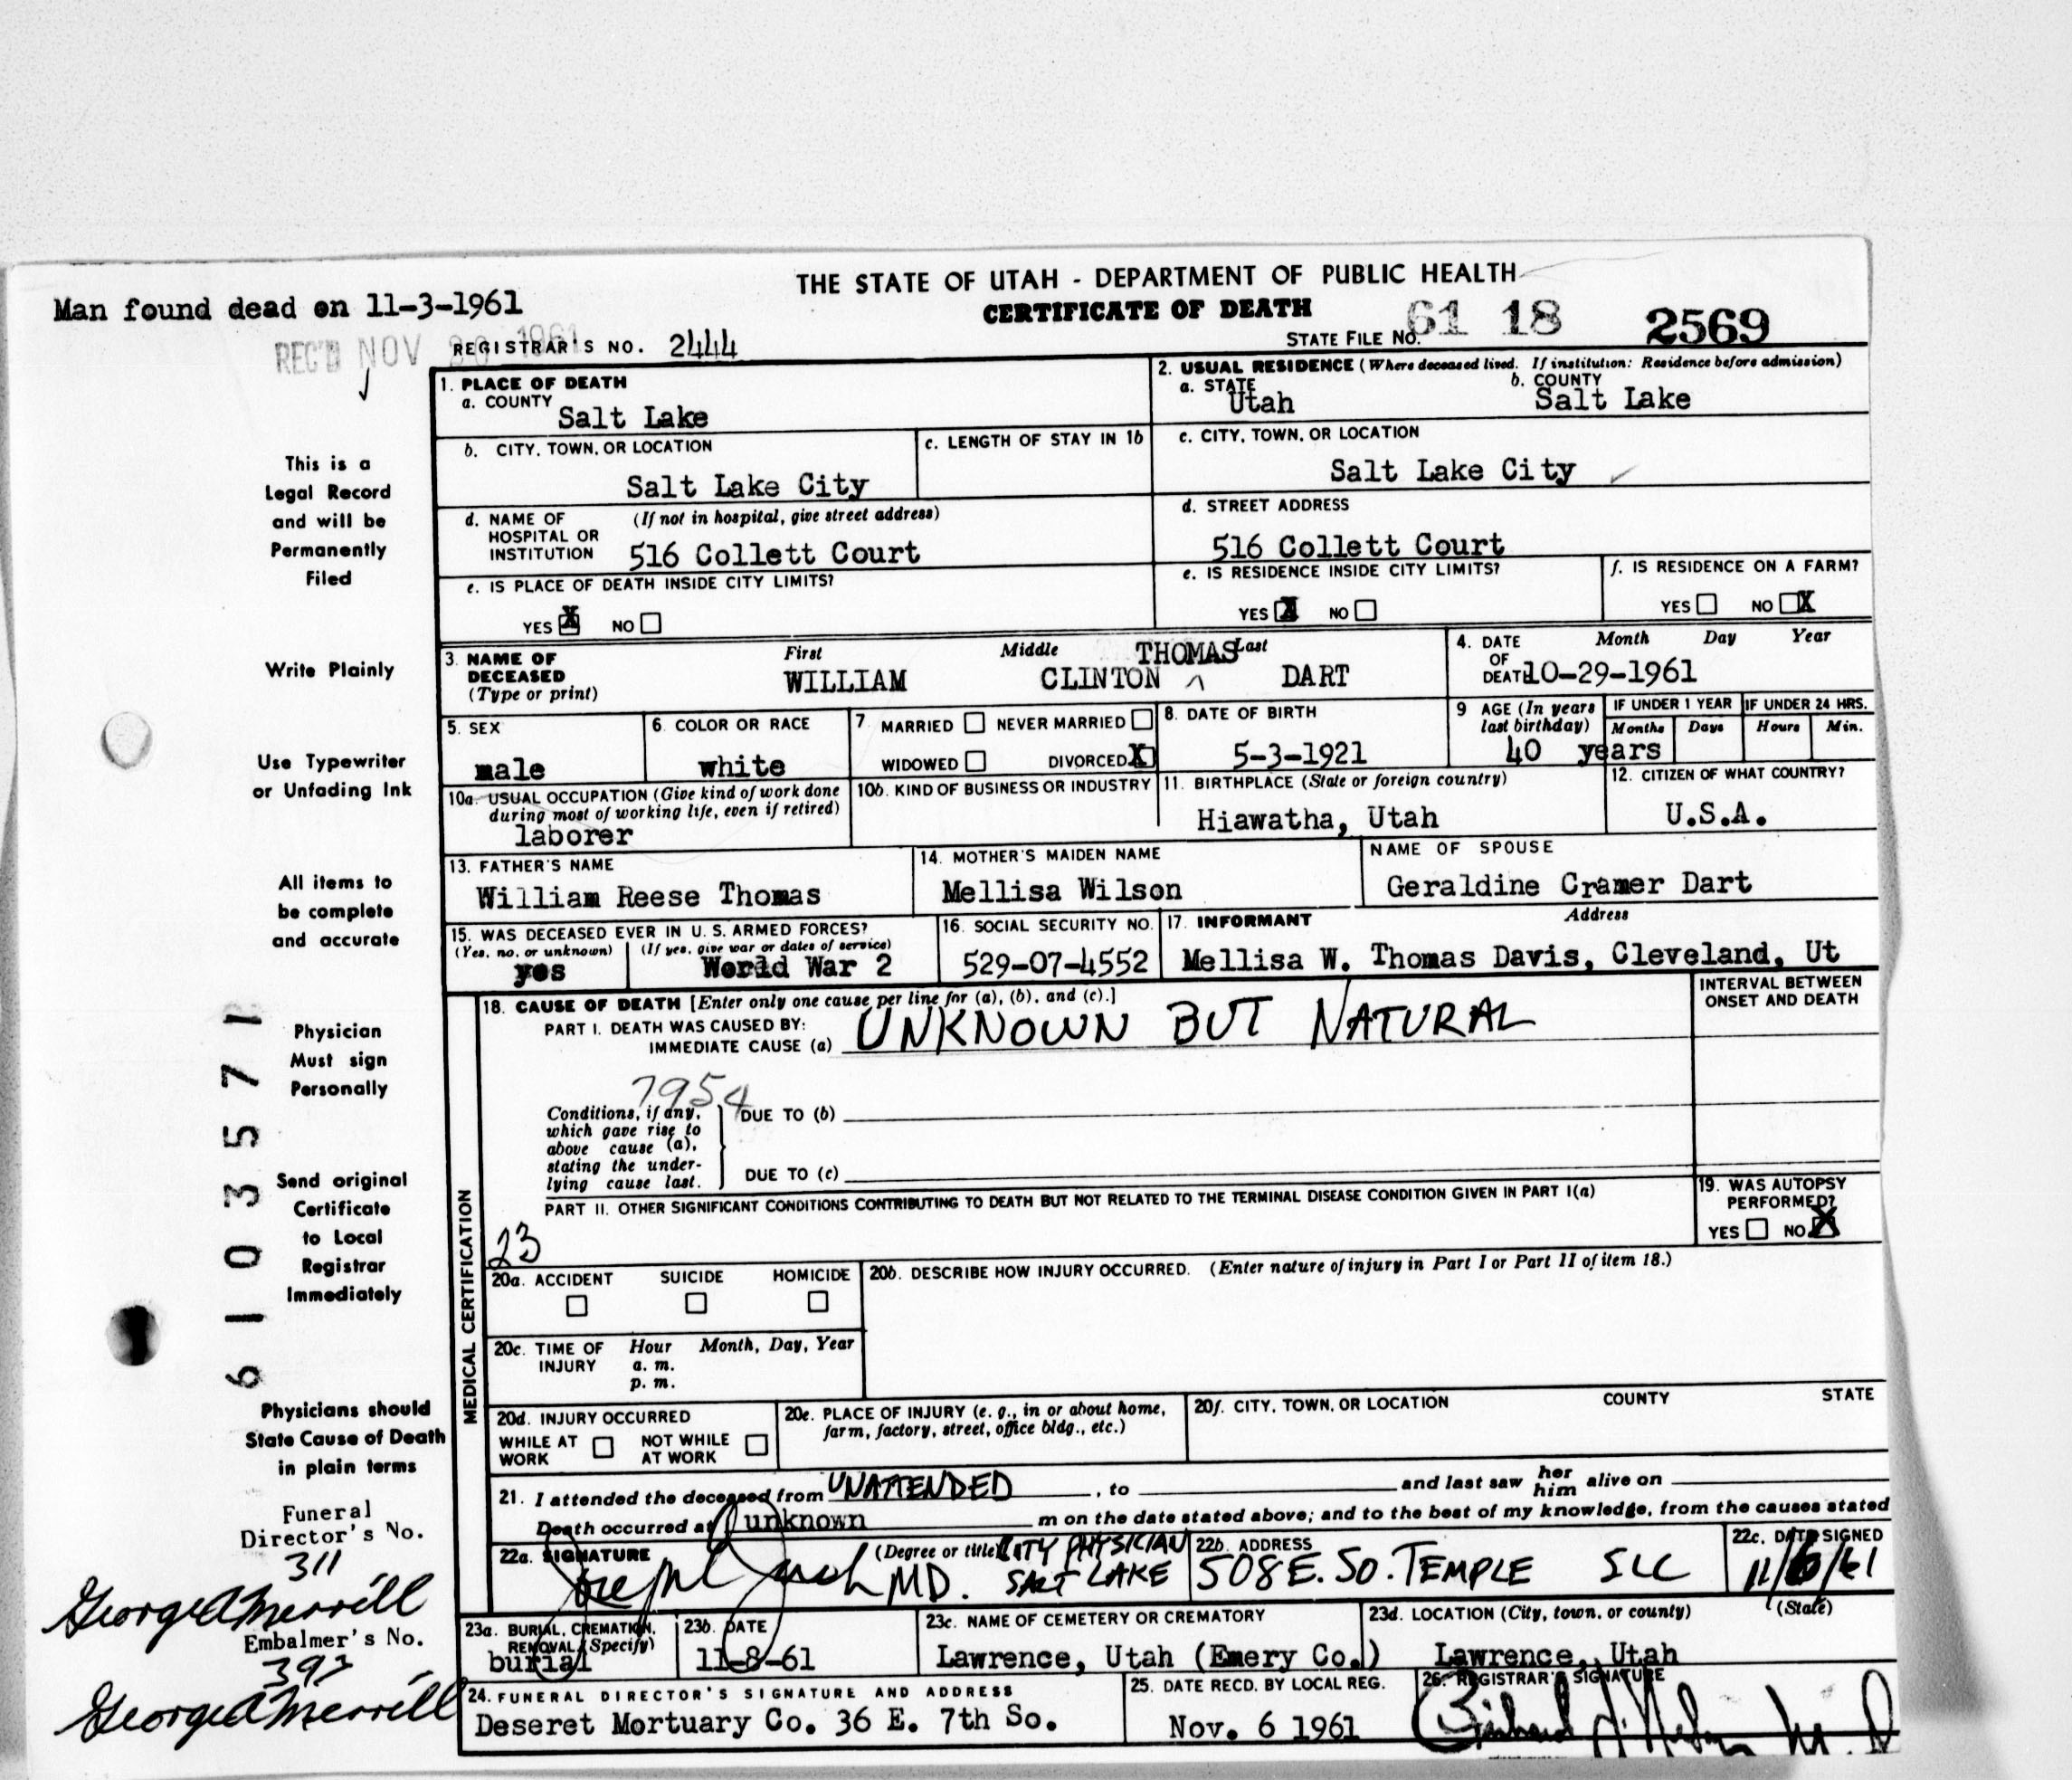 THE STATE OF UTAH - DEPARTMENT OF PUBLIC HEALTH
Man found dead on 11-3-1961
CERTIFICATE OF DEATH
REC'D NOV 20 1961
REGISTRAR'S NO. 2444
STATE FILE NO. 61 18 2569
1. PLACE OF DEATH
a. COUNTY
Salt Lake
2. USUAL RESIDENCE (Where deceased lived. If institution: Residence before admission)
a. STATE
Utah
b. COUNTY
Salt Lake
b. CITY, TOWN, OR LOCATION
Salt Lake City
c. LENGTH OF STAY IN 1b
c. CITY, TOWN, OR LOCATION
Salt Lake City
d. NAME OF (If not in hospital, give street address)
HOSPITAL OR
INSTITUTION 516 Collett Court
d. STREET ADDRESS
516 Collett Court
e. IS PLACE OF DEATH INSIDE CITY LIMITS?
YES X NO
e. IS RESIDENCE INSIDE CITY LIMITS?
YES X NO
f. IS RESIDENCE ON A FARM?
YES NO X
3. NAME OF
DECEASED
(Type or print)
First Middle Last
THOMAS
WILLIAM CLINTON ^ DART
4. DATE Month Day Year
OF
DEATH 10-29-1961
5. SEX
male
6. COLOR OR RACE
white
7. MARRIED NEVER MARRIED
WIDOWED DIVORCED X
8. DATE OF BIRTH
5-3-1921
9 AGE (In years
last birthday)
40 years
IF UNDER 1 YEAR
Months Days
IF UNDER 24 HRS.
Hours Min.
10a. USUAL OCCUPATION (Give kind of work done
during most of working life, even if retired)
laborer
10b. KIND OF BUSINESS OR INDUSTRY
11. BIRTHPLACE (State or foreign country)
Hiawatha, Utah
12. CITIZEN OF WHAT COUNTRY?
U.S.A.
13. FATHER'S NAME
William Reese Thomas
14. MOTHER'S MAIDEN NAME
Mellisa Wilson
NAME OF SPOUSE
Geraldine Cramer Dart
15. WAS DECEASED EVER IN U. S. ARMED FORCES?
(Yes, no, or unknown) (If yes, give war or dates of service)
yes World War 2
16. SOCIAL SECURITY NO.
529-07-4552
17. INFORMANT Address
Mellisa W. Thomas Davis, Cleveland, Ut
MEDICAL CERTIFICATION
18. CAUSE OF DEATH [Enter only one cause per line for (a), (b), and (c).]
PART I. DEATH WAS CAUSED BY:
IMMEDIATE CAUSE (a) UNKNOWN BUT NATURAL
INTERVAL BETWEEN
ONSET AND DEATH
7954
Conditions, if any,
which gave rise to
above cause (a),
stating the under-
lying cause last.
DUE TO (b)
DUE TO (c)
PART II. OTHER SIGNIFICANT CONDITIONS CONTRIBUTING TO DEATH BUT NOT RELATED TO THE TERMINAL DISEASE CONDITION GIVEN IN PART I(a)
23
19. WAS AUTOPSY
PERFORMED?
YES NO X
20a. ACCIDENT SUICIDE HOMICIDE
20b. DESCRIBE HOW INJURY OCCURRED. (Enter nature of injury in Part I or Part II of item 18.)
20c. TIME OF Hour Month, Day, Year
INJURY a. m.
p. m.
20d. INJURY OCCURRED
WHILE AT NOT WHILE
WORK AT WORK
20e. PLACE OF INJURY (e. g., in or about home,
farm, factory, street, office bldg., etc.)
20f. CITY, TOWN, OR LOCATION COUNTY STATE
21. I attended the deceased from UNATTENDED, to and last saw her him alive on
Death occurred at unknown m on the date stated above; and to the best of my knowledge, from the causes stated
22a. SIGNATURE (Degree or title) CITY PHYSICIAN
MD. SALT LAKE
22b. ADDRESS
508 E. SO. TEMPLE SLC
22c. DATE SIGNED
11/6/61
23a. BURIAL, CREMATION,
REMOVAL (Specify)
burial
23b. DATE
11-8-61
23c. NAME OF CEMETERY OR CREMATORY
Lawrence, Utah (Emery Co.)
23d. LOCATION (City, town, or county) (State)
Lawrence, Utah
24. FUNERAL DIRECTOR'S SIGNATURE AND ADDRESS
Deseret Mortuary Co. 36 E. 7th So.
25. DATE RECD. BY LOCAL REG.
Nov. 6 1961
26. REGISTRAR'S SIGNATURE
This is a
Legal Record
and will be
Permanently
Filed
Write Plainly
Use Typewriter
or Unfading Ink
All items to
be complete
and accurate
Physician
Must sign
Personally
Send original
Certificate
to Local
Registrar
Immediately
Physicians should
State Cause of Death
in plain terms
6 1 0 3 5 7 1
Funeral
Director's No.
311
George A Merrill
Embalmer's No.
393
George A Merrill